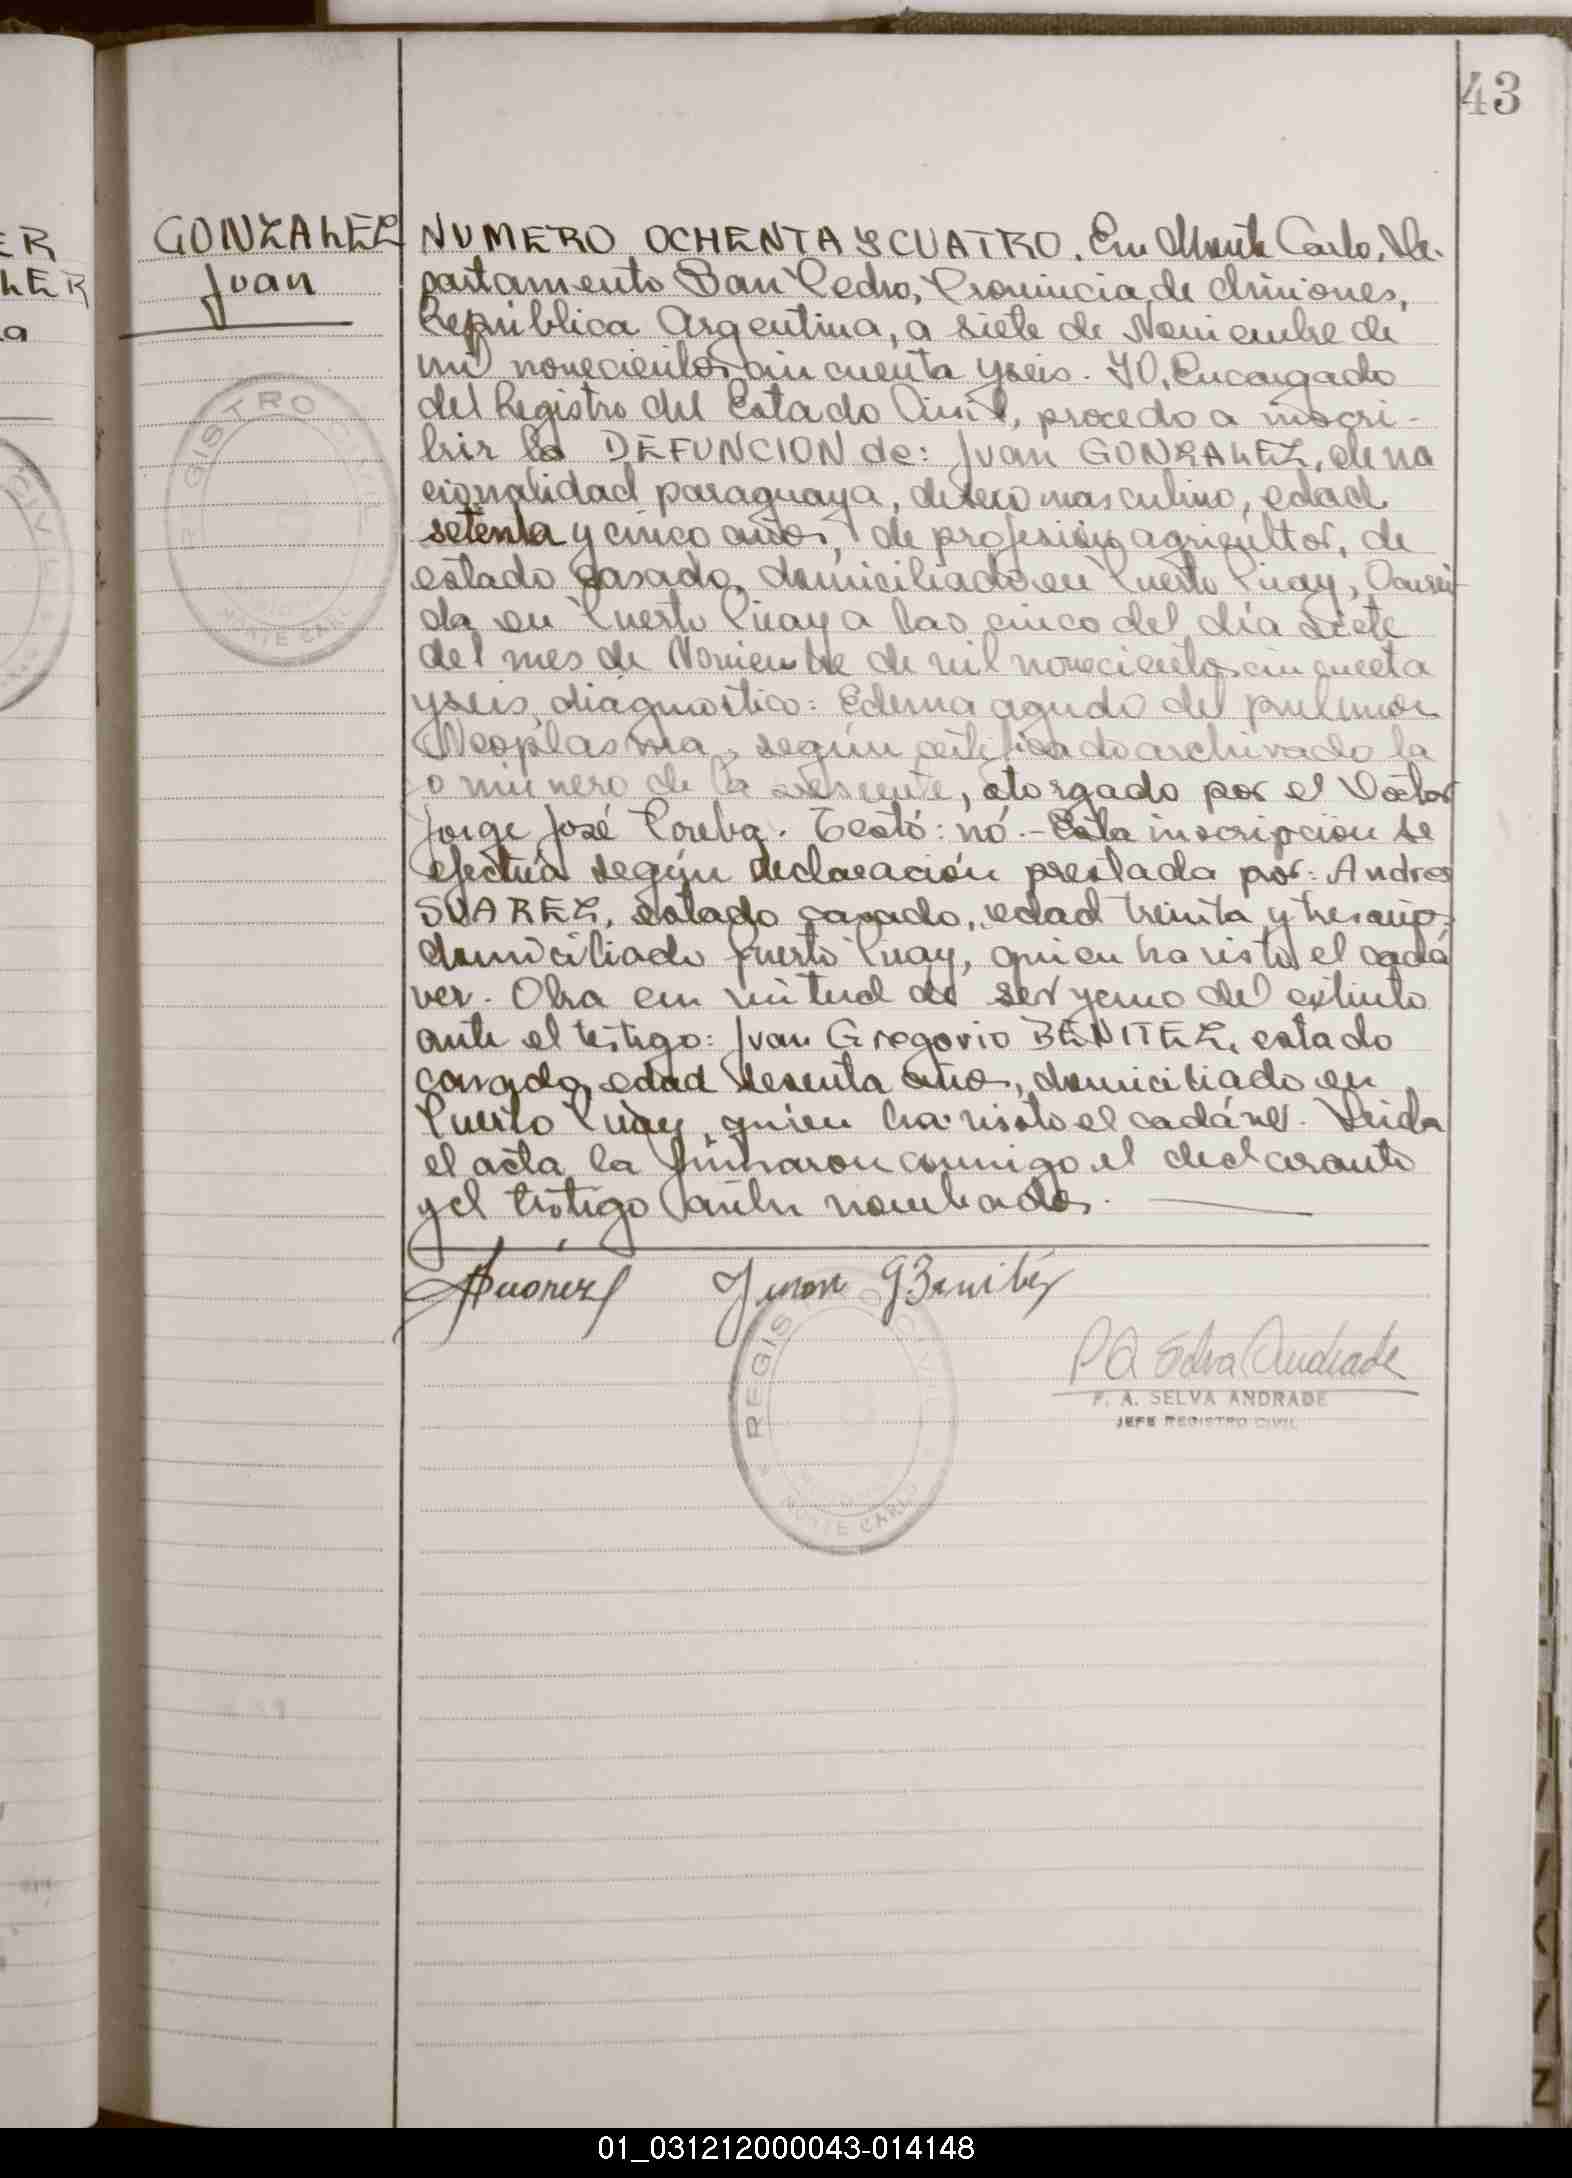 43
ER
LER
a
GONZALEZ
Juan
NUMERO OCHENTA Y CUATRO. En Monte Carlo, De-
partamento San Pedro, Provincia de Misiones,
República Argentina, a siete de Noviembre de
mil novecientos cincuenta y seis. YO, Encargado
del Registro del Estado Civil, procedo a inscri-
bir la DEFUNCION de: Juan GONZALEZ, de na
cionalidad paraguaya, de sexo masculino, edad
setenta y cinco años, de profesión agricultor, de
estado casado, domiciliado en Puerto Piray, Ocurri-
da en Puerto Piray a las cinco del día siete
del mes de Noviembre de mil novecientos cincuenta
y seis, diagnostico: Edema agudo del pulmon
Neoplasma, según certificado archivado ba
jo numero de la presente, otorgado por el Doctor
Jorge José . Testó: nó.- Esta inscripción se
efectúa según declaración prestada por: Andres
SUAREZ, estado casado, edad treinta y tres años,
domiciliado Puerto Piray, quien ha visto el cadá
ver. Obra en virtud de ser yerno del extinto
ante el testigo: Juan Gregorio BENITEZ, estado
casado, edad sesenta años, domiciliado en
Puerto Piray, quien ha visto el cadáver. Leida
el acta la firmaron conmigo el declarante
y el testigo antes nombrados.
ASuarez Juan G Benitez
P A Selva Andrade
P. A. SELVA ANDRADE
JEFE REGISTRO CIVIL
REGISTRO CIVIL
MONTE CARLO
REGISTRO CIVIL
MONTE CARLO
01_031212000043-014148